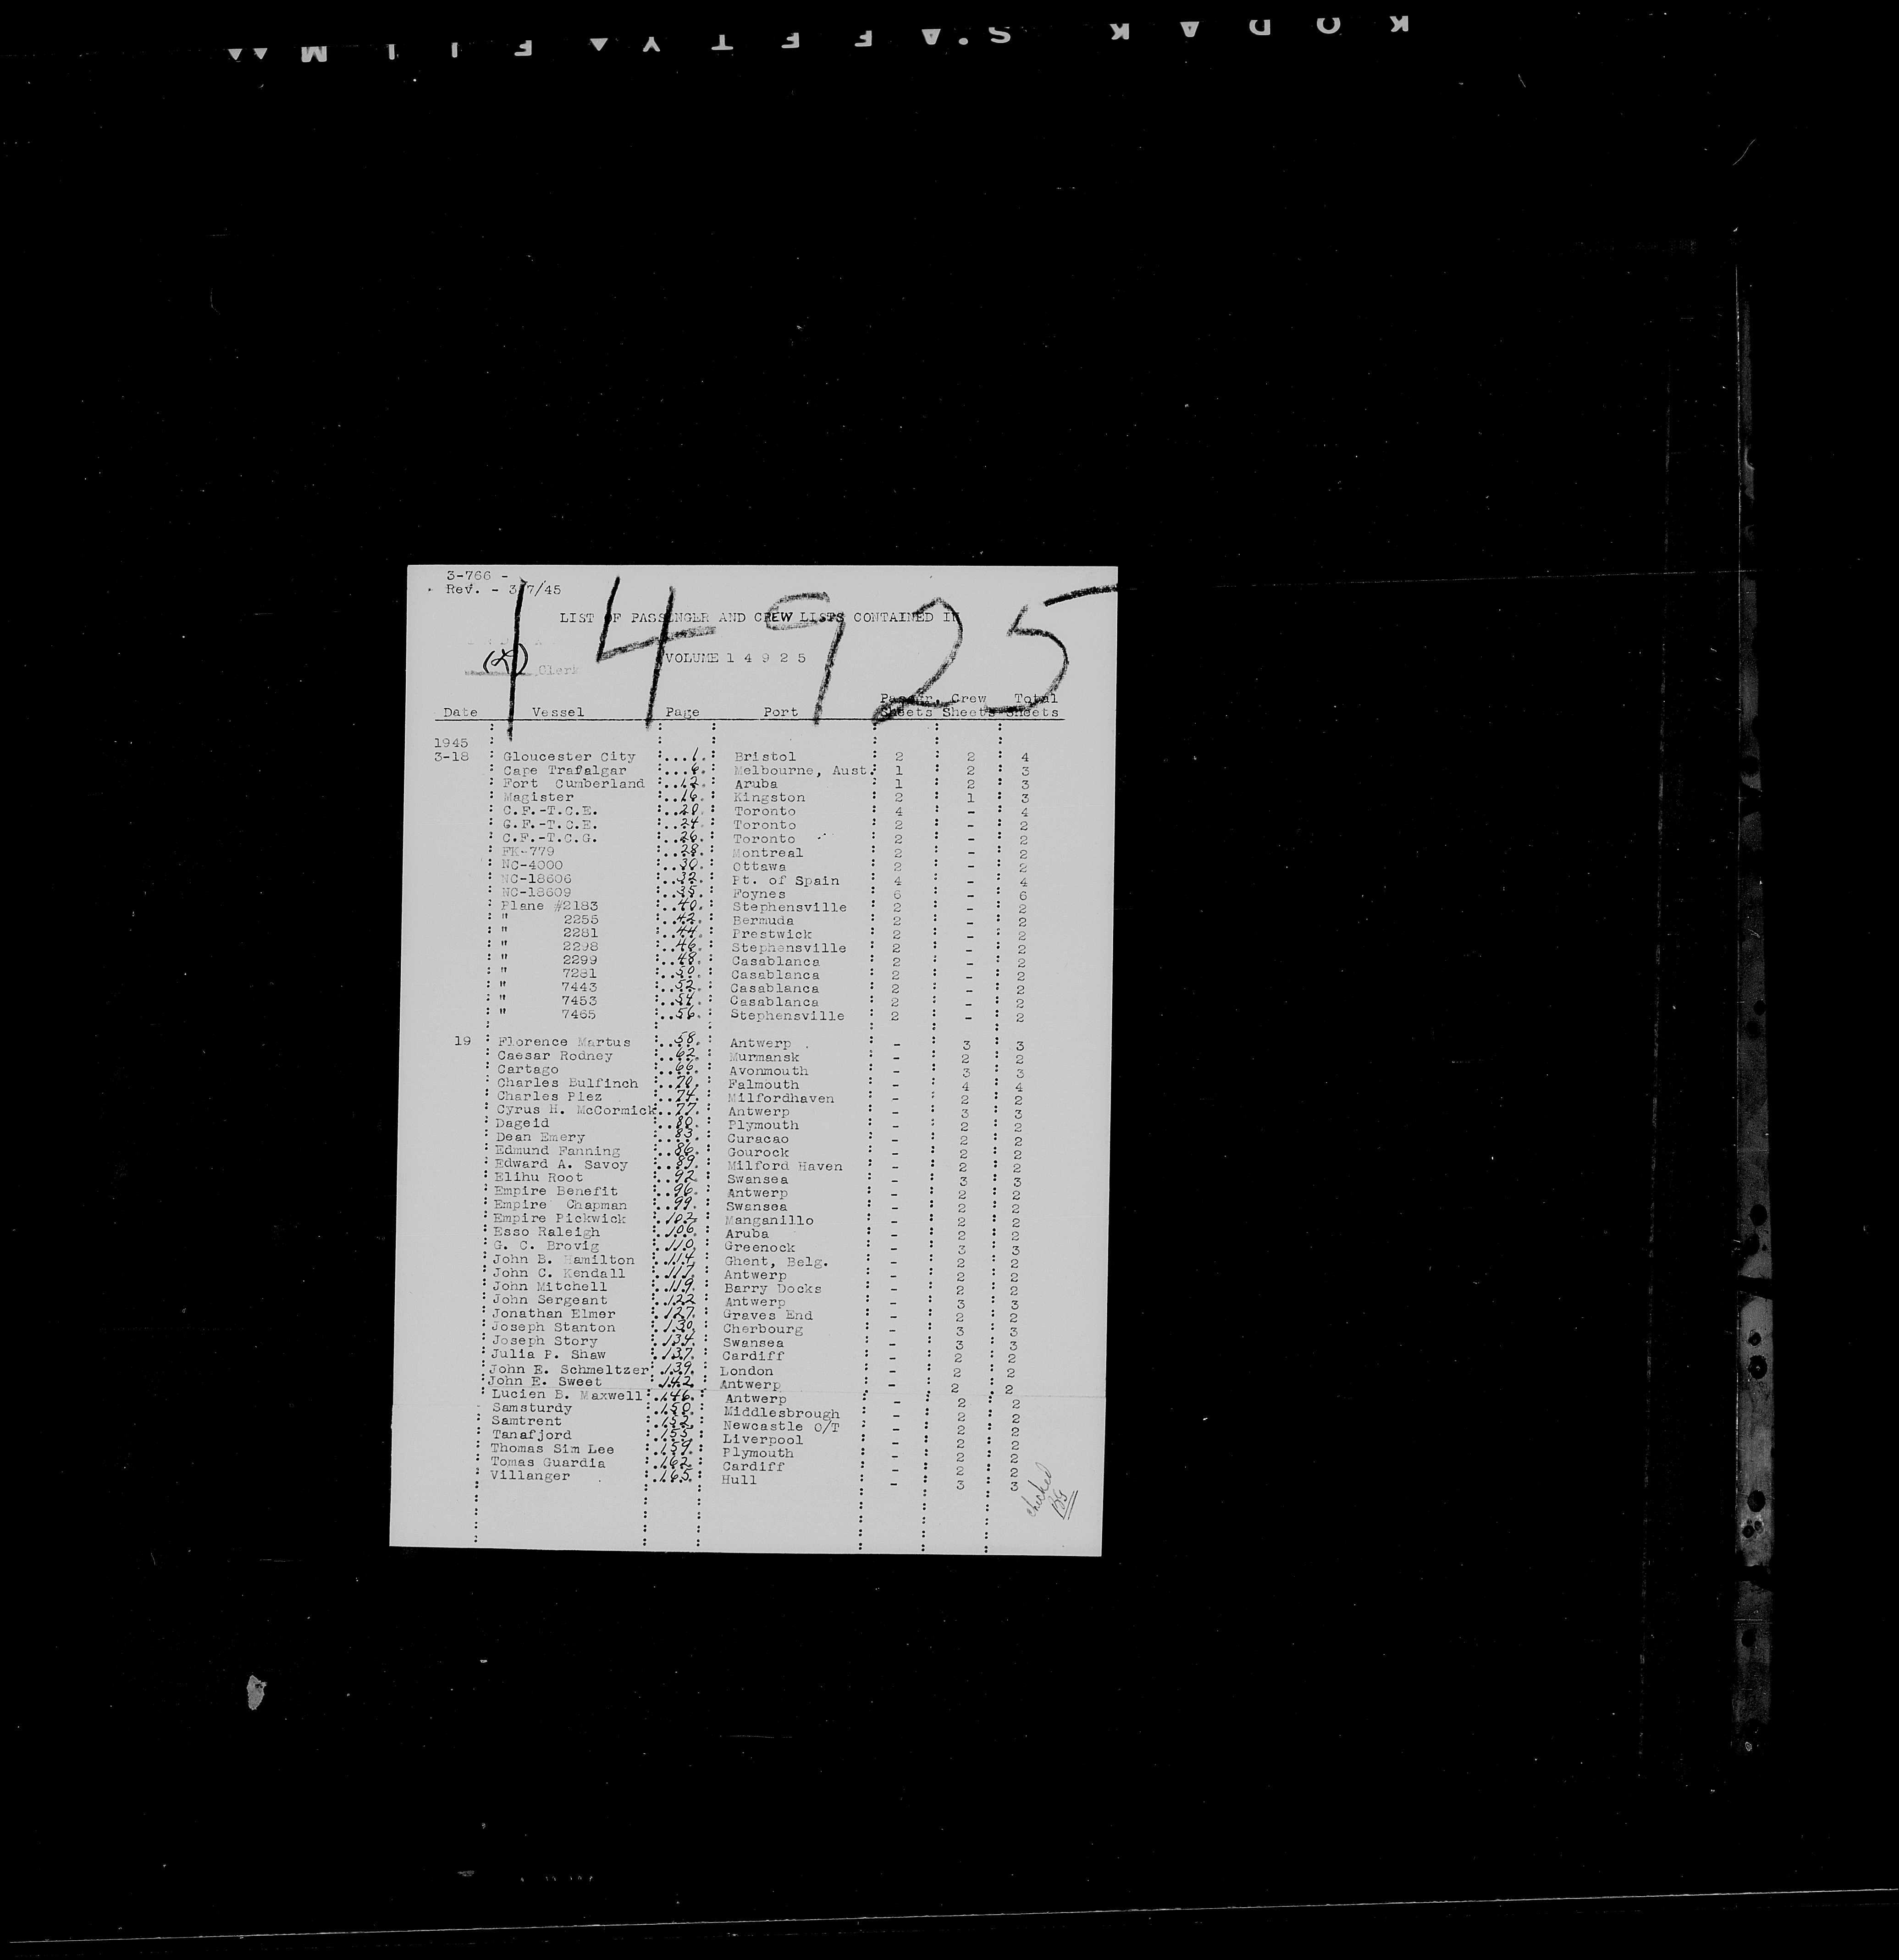 KODAK S.A.F.E.T.Y. FILM
3-766 -
Rev. - 3/7/45
14925
LIST OF PASSENGER AND CREW LISTS CONTAINED IN
VOLUME 1 4 9 2 5
Clerk
Passgr. Crew Total
Date Vessel Page Port Sheets Sheets Sheets
1945
3-18 Gloucester City 1 Bristol 2 2 4
Cape Trafalgar 6 Melbourne, Aust. 1 2 3
Fort Cumberland 12 Aruba 1 2 3
Magister 16 Kingston 2 1 3
C.F.-T.C.E. 20 Toronto 4 - 4
G.F.-T.C.E. 24 Toronto 2 - 2
C.F.-T.C.G. 26 Toronto 2 - 2
FK-779 28 Montreal 2 - 2
NC-4000 30 Ottawa 2 - 2
NC-18606 32 Pt. of Spain 4 - 4
NC-18609 35 Foynes 6 - 6
Plane #2183 40 Stephensville 2 - 2
" 2255 42 Bermuda 2 - 2
" 2281 44 Prestwick 2 - 2
" 2298 46 Stephensville 2 - 2
" 2299 48 Casablanca 2 - 2
" 7281 50 Casablanca 2 - 2
" 7443 52 Casablanca 2 - 2
" 7453 54 Casablanca 2 - 2
" 7465 56 Stephensville 2 - 2
19 Florence Martus 58 Antwerp - 3 3
Caesar Rodney 62 Murmansk - 2 2
Cartago 66 Avonmouth - 3 3
Charles Bulfinch 70 Falmouth - 4 4
Charles Piez 74 Milfordhaven - 2 2
Cyrus H. McCormick 77 Antwerp - 3 3
Dageid 80 Plymouth - 2 2
Dean Emery 83 Curacao - 2 2
Edmund Fanning 86 Gourock - 2 2
Edward A. Savoy 89 Milford Haven - 2 2
Elihu Root 92 Swansea - 3 3
Empire Benefit 96 Antwerp - 2 2
Empire Chapman 99 Swansea - 2 2
Empire Pickwick 102 Manganillo - 2 2
Esso Raleigh 106 Aruba - 2 2
G. C. Brovig 110 Greenock - 3 3
John B. Hamilton 114 Ghent, Belg. - 2 2
John C. Kendall 117 Antwerp - 2 2
John Mitchell 119 Barry Docks - 2 2
John Sergeant 122 Antwerp - 3 3
Jonathan Elmer 127 Graves End - 2 2
Joseph Stanton 130 Cherbourg - 3 3
Joseph Story 134 Swansea - 3 3
Julia P. Shaw 137 Cardiff - 2 2
John E. Schmeltzer 139 London - 2 2
John E. Sweet 142 Antwerp - 2 2
Lucien B. Maxwell 146 Antwerp - 2 2
Samsturdy 150 Middlesbrough - 2 2
Samtrent 152 Newcastle O/T - 2 2
Tanafjord 155 Liverpool - 2 2
Thomas Sim Lee 159 Plymouth - 2 2
Tomas Guardia 162 Cardiff - 2 2
Villanger 165 Hull - 3 3
checked